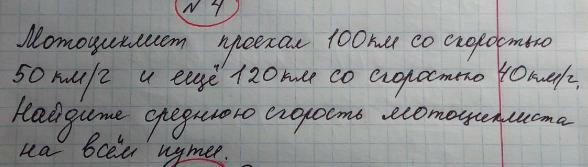 № 4
Мотоциклист проехал 100км со скоростью
50 км/г и ещё 120км со скоростью 40км/г.
Найдите среднюю скорость мотоциклиста
на всём пути.